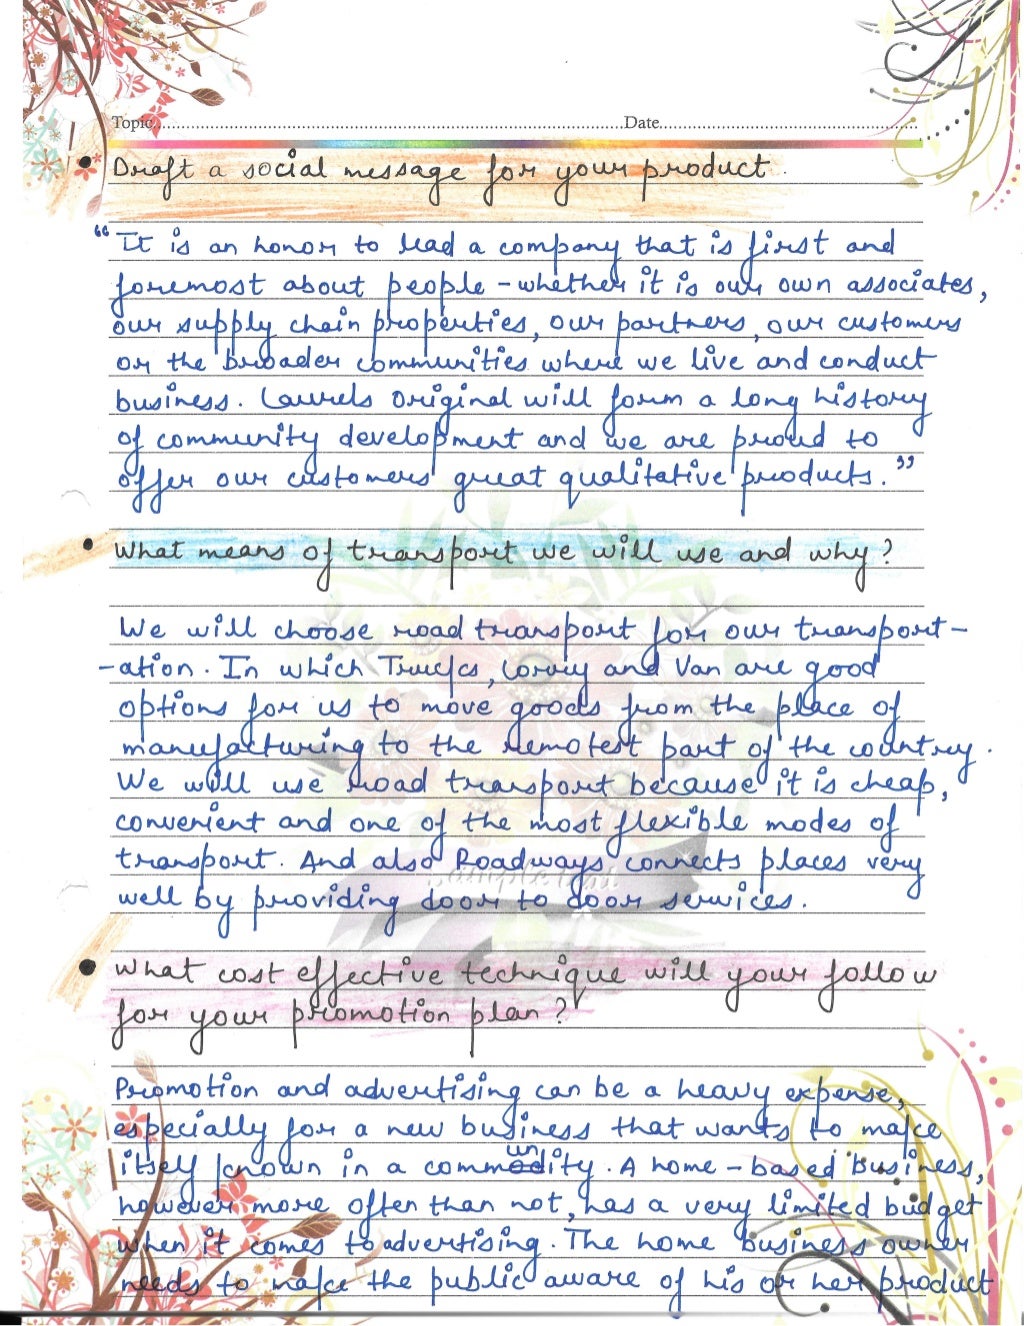 Topic..................................................Date..................................................
• Draft a social message for your product.
"It is an honor to lead a company that is first and
foremost about people - whether it is our own associates,
our supply chain properties, our partners, our customers
or the broader communities where we live and conduct
business. Laurels Original will form a long history
of community development and we are proud to
offer our customers great qualitative products."
• What means of transport we will use and why?
We will choose road transport for our transport-
-ation. In which Trucks, Lorry and Van are good
options for us to move goods from the place of
manufacturing to the remotest part of the country.
We will use road transport because it is cheap,
convenient and one of the most flexible modes of
transport. And also Roadways connects places very
well by providing door to door services.
• What cost effective technique will your follow
for your promotion plan?
Promotion and advertising can be a heavy expense,
especially for a new business that wants to make
itself known in a community. A home-based Business,
however more often than not, has a very limited budget
when it comes to advertising. The home business owner
needs to make the public aware of his or her product